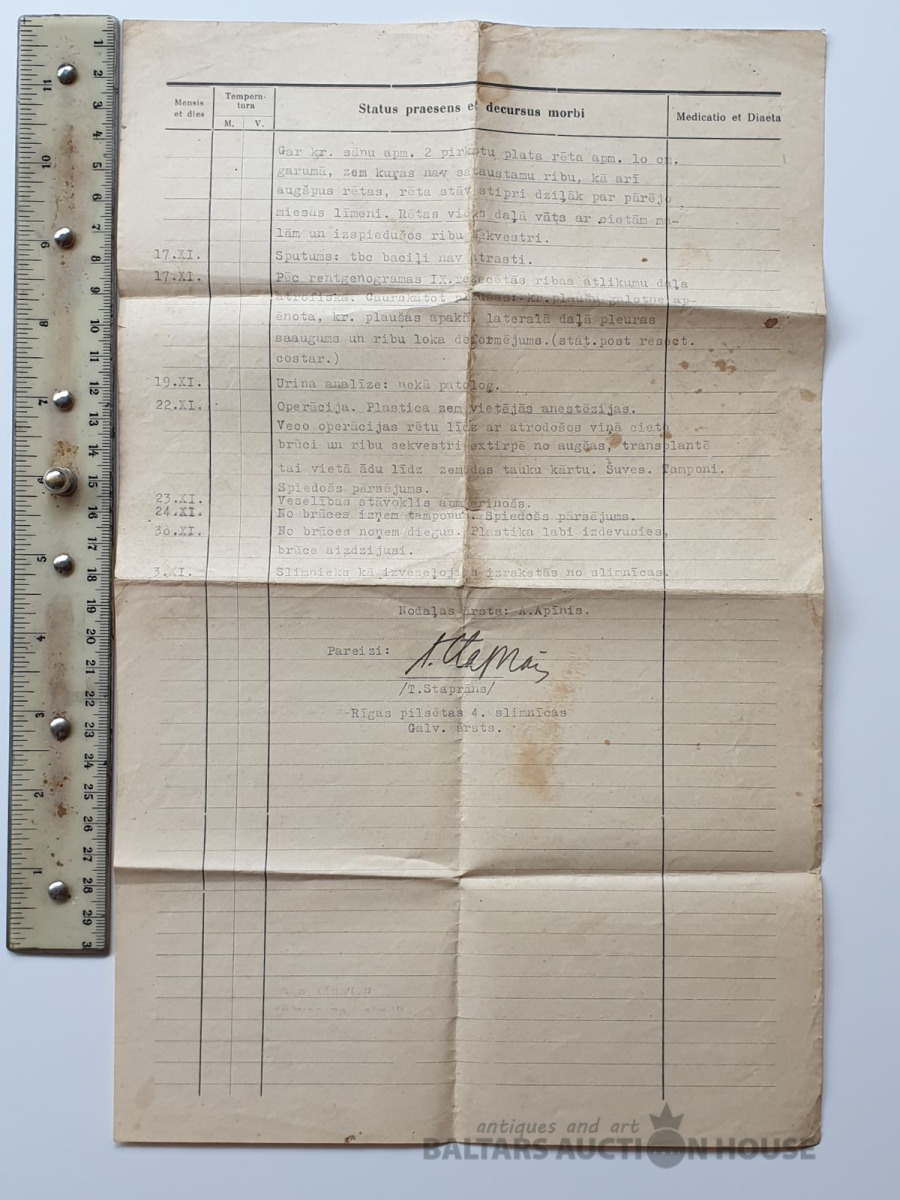 Mensis et dies
Temperatura
M. V.
Status praesens et decursus morbi
Medicatio et Diaeta
Gar kr. sānu apm. 2 pirkstu plata rēta apm. 1o cm.
garumā, zem kuras nav sataustamu ribu, kā arī
augšpus rētas, rēta stāv stipri dziļāk par pārējo
miesas līmeni. Rētas vidus daļā vāts ar cietām ma-
lām un izspiedušos ribu sekvestri.
17.XI. Sputums: tbc baciļi nav atrasti.
17.XI. Pēc rentgenogramas IX.rezecētās ribas atlikumu daļa
atrofiska. Caurskatot plaušas: kr.plaušu galotne ap-
ēnota, kr. plaušas apakš, laterālā daļā pleuras
saaugums un ribu loka deformējums.(stat.post resect.
costar.)
19.XI. Urīna analīze: nekā patolog.
22.XI. Operācija. Plastica zem vietējās anestēzijas.
Veco operācijas rētu līdz ar atrodošos viņā cieto
brūci un ribu sekvestri extirpē no augšas, transplantē
tai vietā ādu līdz zemādas tauku kārtu. Šuves. Tamponi.
Spiedošs pārsējums.
23.XI. Veselības stāvoklis apmierinošs.
24.XI. No brūces izņem tamponu. Spiedošs pārsējums.
3o.XI. No brūces noņem diegus. Plastika labi izdevusies,
brūce aizdzijusi.
3.XI. Slimnieks kā izveseļojies izrakstās no slimnīcas.
Nodaļas ārsts: A.Apīnis.
Pareizi:
/T.Staprāns/
-Rīgas pilsētas 4. slimnīcas
Galv. ārsts.
antiques and art
BALTARS AUCTION HOUSE
1 2 3 4 5 6 7 8 9 10 11 12 13 14 15 16 17 18 19 20 21 22 23 24 25 26 27 28 29 3
11 10 9 8 7 6 5 4 3 2 1